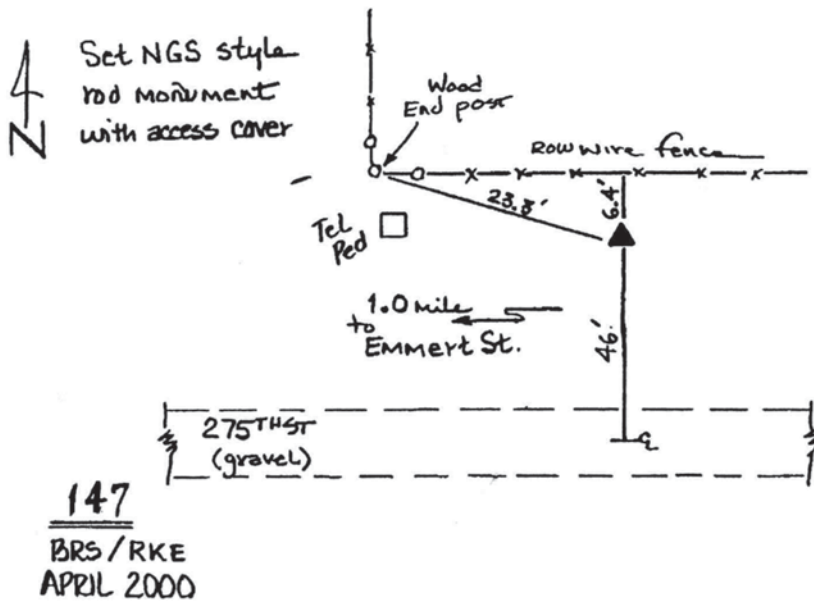 Set NGS style
rod monument
with access cover
N
Wood
End post
ROW wire fence
23.3'
6.4'
Tel
Ped
1.0 mile
to
Emmert St.
46'
275TH ST
(gravel)
℄
147
BRS/RKE
APRIL 2000